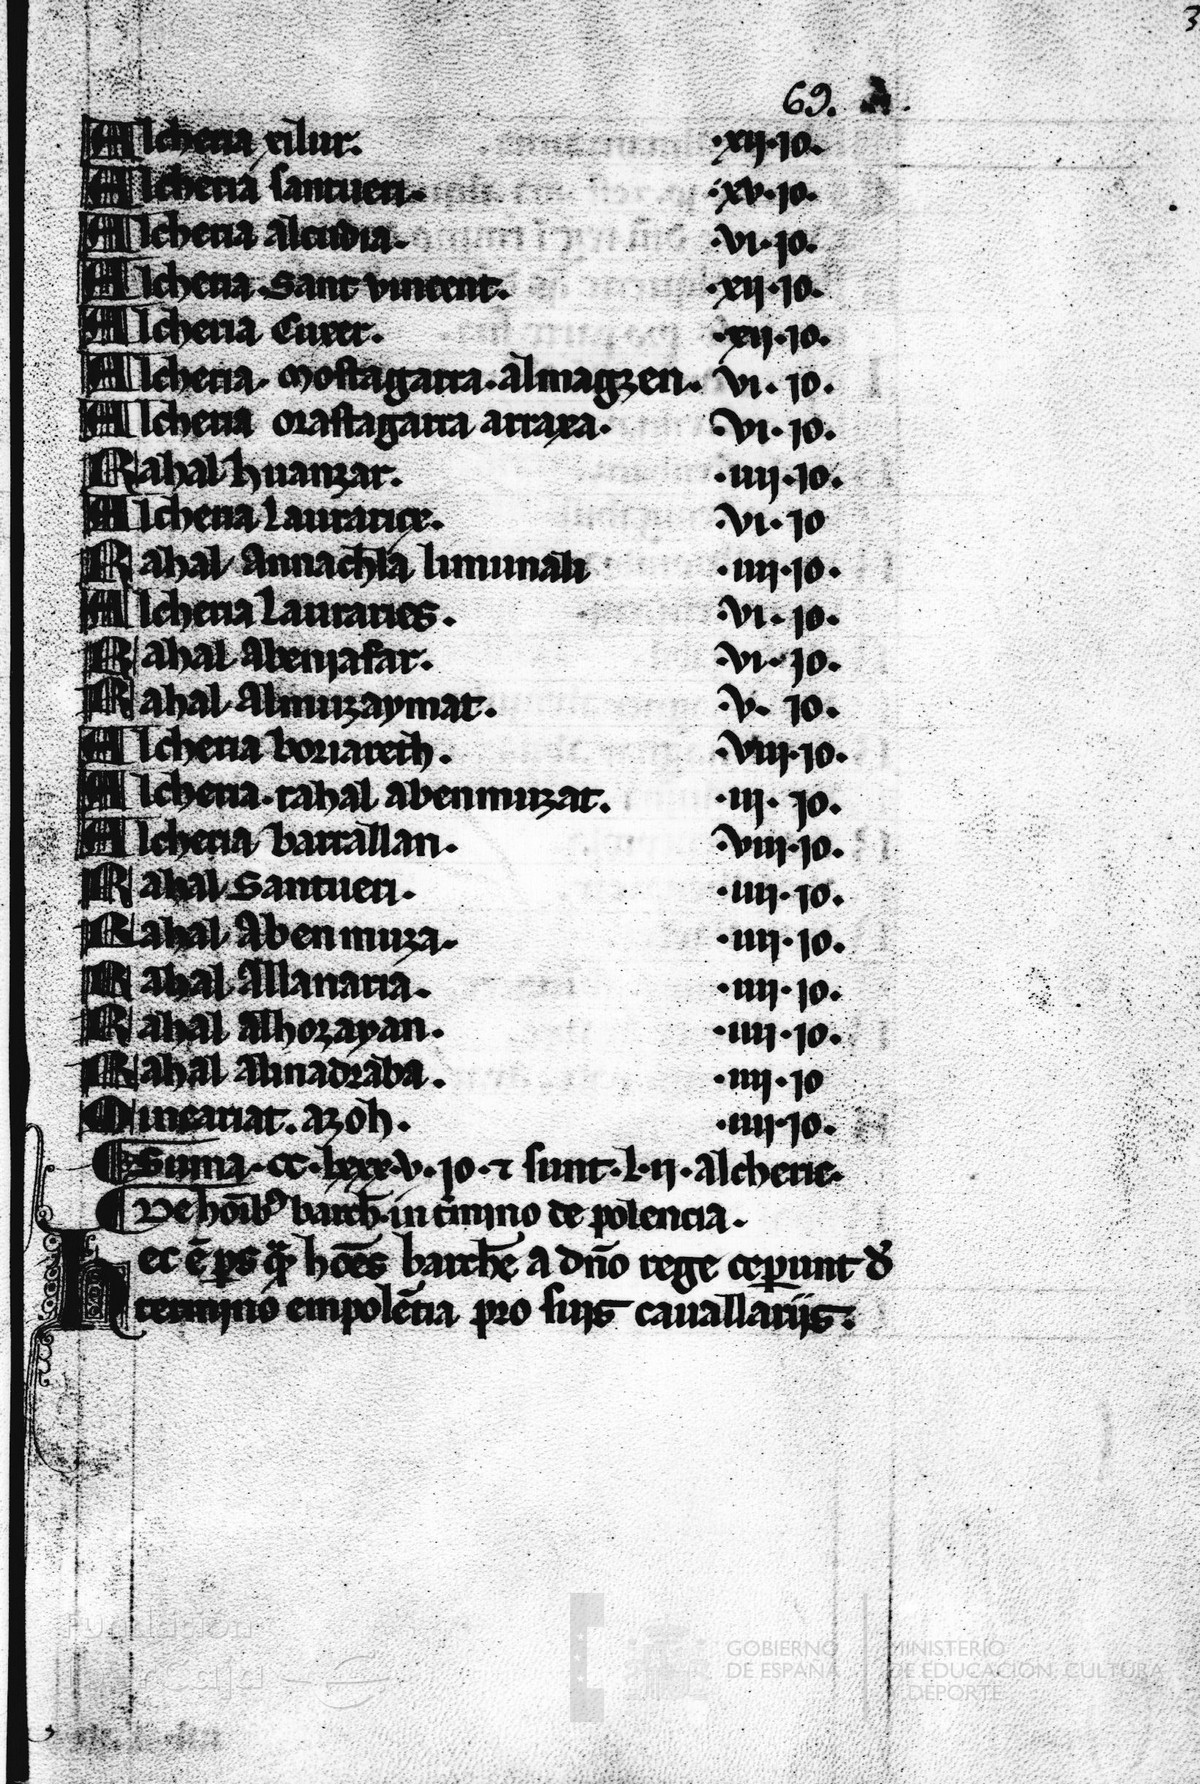 3
69. A.
Alcheria xilur. ·xij·jo.
Alcheria santueri. ·xv·jo.
Alcheria alcudia. ·vi·jo.
Alcheria Sant vincent. ·xij·jo.
Alcheria Cuxer. ·xij·jo.
Alcheria· mostagarra·almagzen. vi· jo.
Alcheria mastagarra arraxa. ·vi·jo.
Rahal huanzar. ·iiij·jo.
Alcheria Lauraricx. ·vi·jo
Rahal Annachla liminali ·iiij·jo.
Alcheria Lauraries. ·vi·jo.
Rahal Abeniafar. ·vi·jo.
Rahal Almuzaymat. ·v· jo.
Alcheria boriareth. ·viij·jo.
Alcheria·rahal abenmuzar. ·iij· jo.
Alcheria barrallan. ·viij·jo.
Rahal Santueri. ·iiij·jo.
Rahal Abenmuza. ·iiij·jo.
Rahal Allanaria. ·iiij·jo.
Rahal alhozayan. ·iiij·jo.
Rahal Almadraba. ·iiij·jo
azoh. ·iiij·jo.
Suma·cc·lxxx·v·jo·⁊ sunt·l·ij·alcherie.
De hoībꝰ barch̄·in t̄mino de polencia.
Hec ē ꝑs q̄ hōēs barch̄n̄ a dn̄o rege ceꝑunt d̄
termino empolēcia pro suis cauallariis.
Fundación
Ibercaja
GOBIERNO DE ESPAÑA
MINISTERIO DE EDUCACIÓN, CULTURA Y DEPORTE